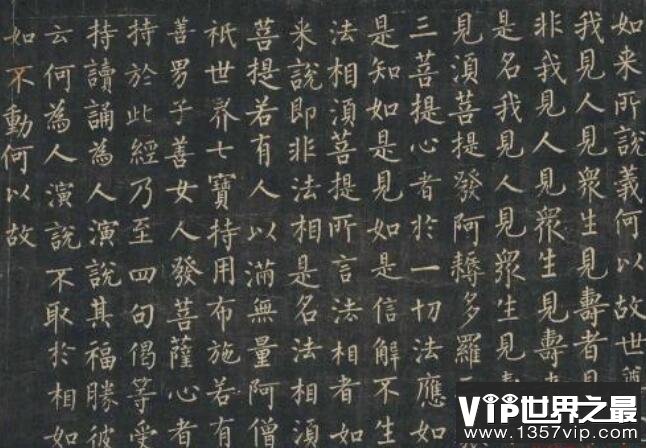 如来所說義何以故世尊
我見人見衆生見壽者見
非我見人見衆生見壽者
是名我見人見衆生見壽
見湏菩提發阿耨多羅三
三菩提心者於一切法應如
是知如是見如是信解不生
法相湏菩提所言法相者如
来說即非法相是名法相湏
菩提若有人以滿無量阿僧
祇世界七寶持用布施若有
善男子善女人發菩薩心者
持於此經乃至四句偈等受
持讀誦為人演說其福勝彼
云何為人演說不取於相如
如不動何以故
VIP世界之最
www.1357vip.com